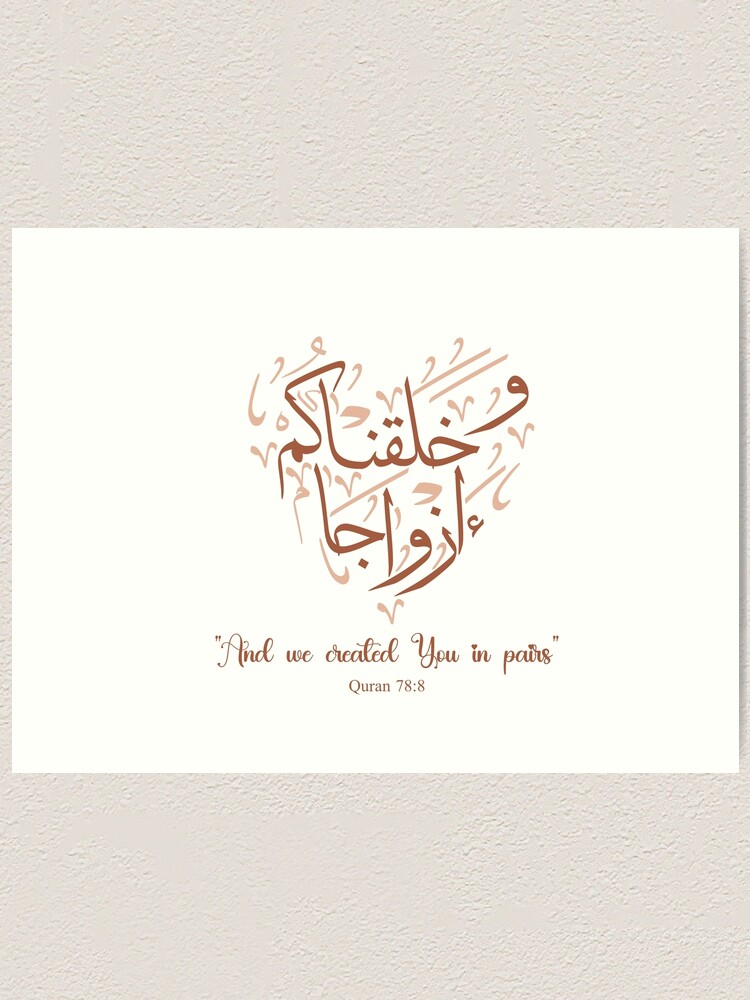 وخلقناكم
أزواجا
"And we created You in pairs"
Quran 78:8